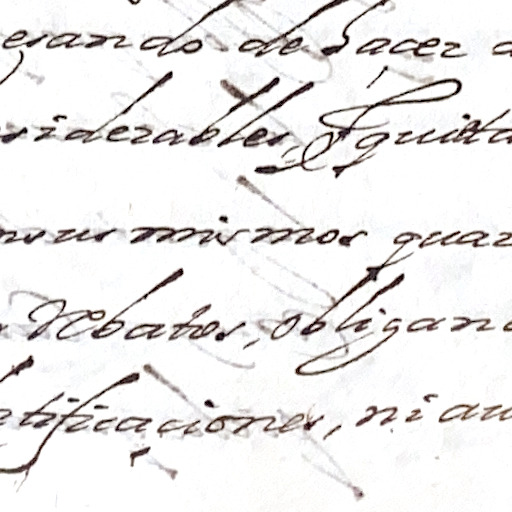 esando de hacer a
siderables, Equita
nsus mismos quar
Rebatos, obligand
atificaciones, ni au